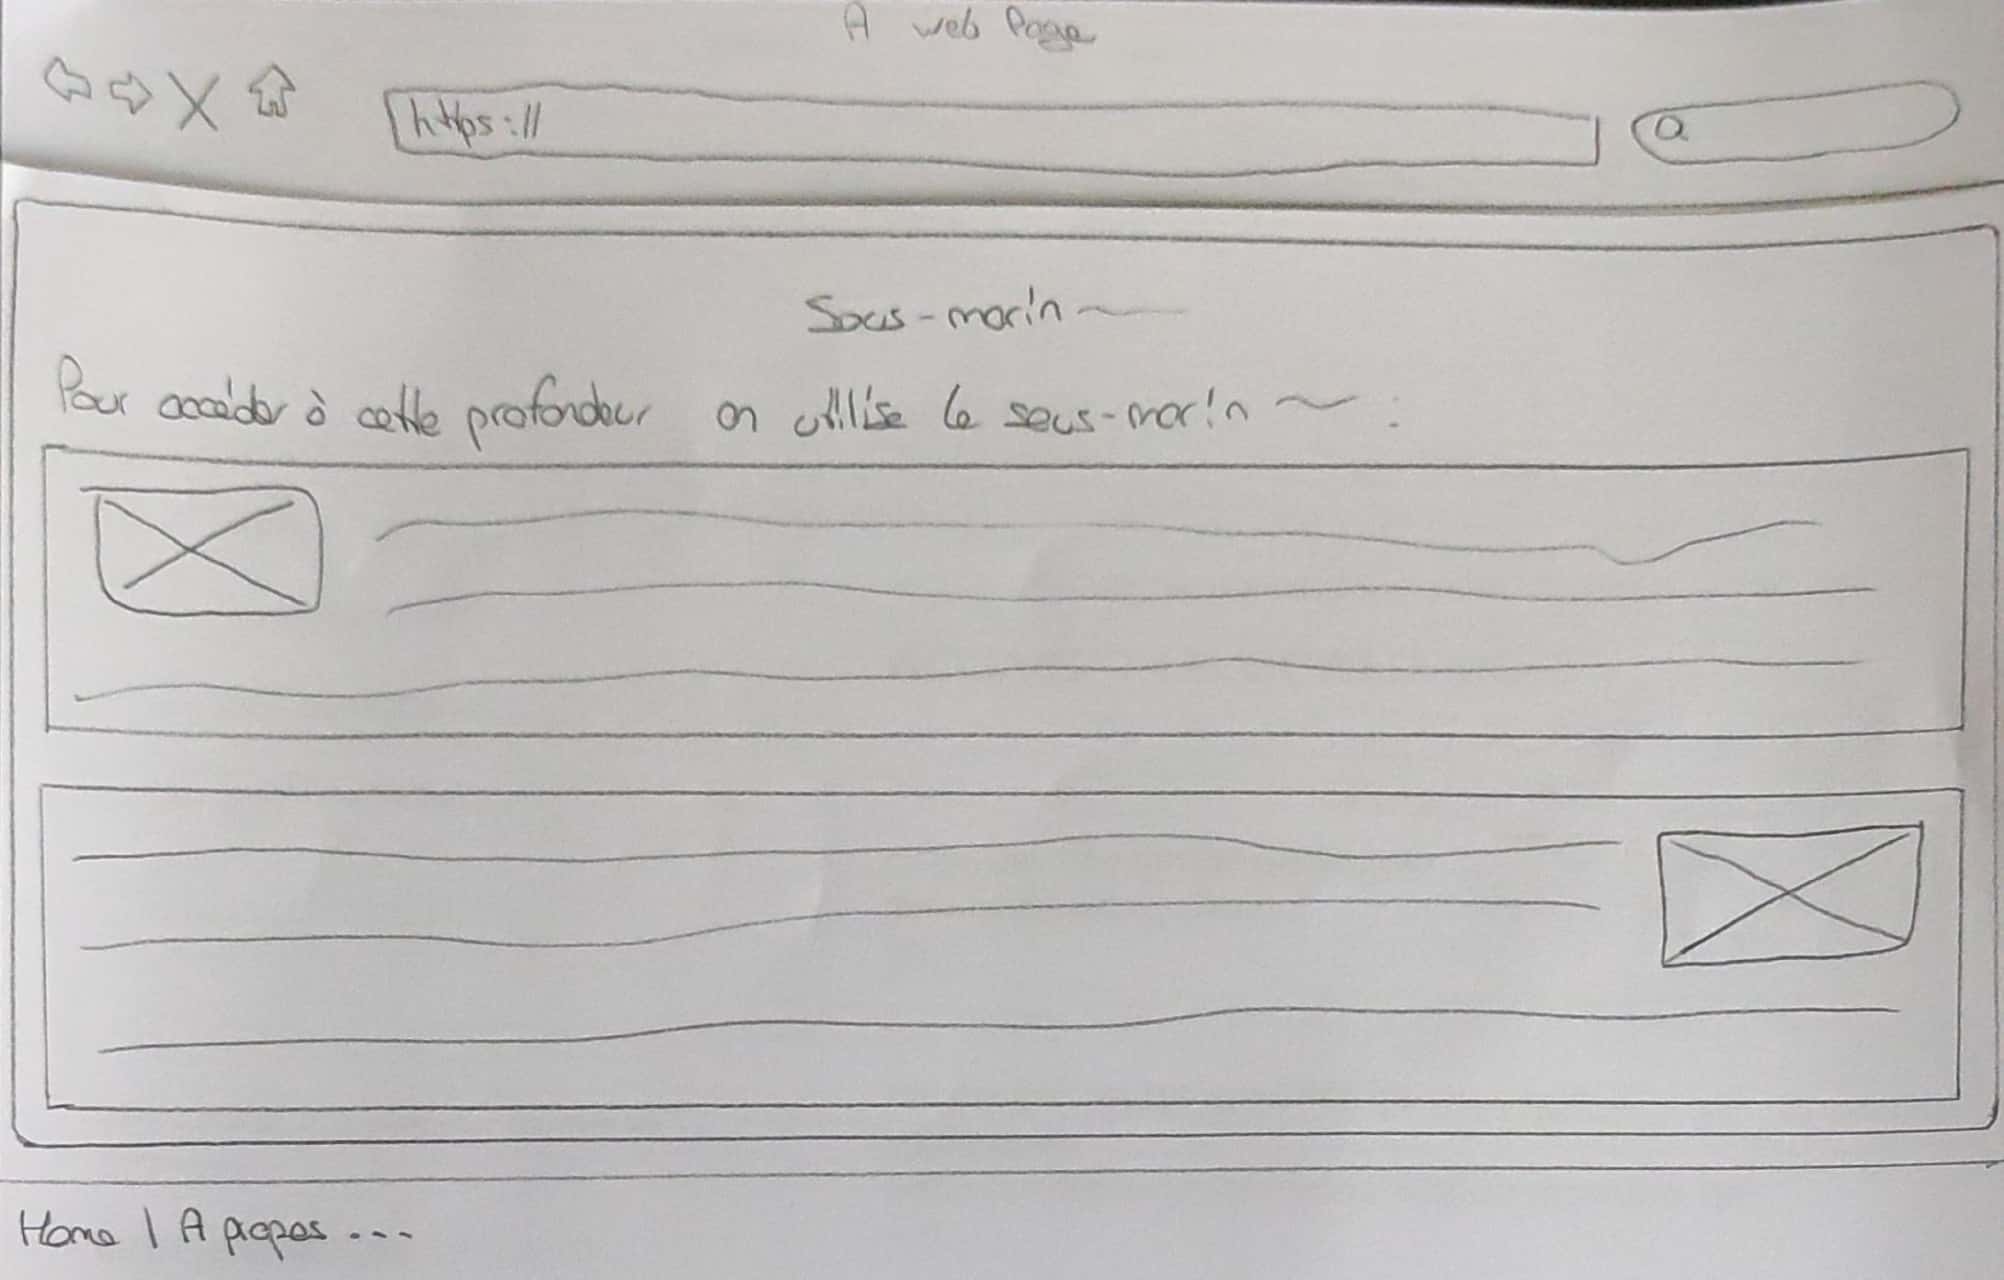 A web Page
https://
Sous-marin
Pour accéder à cette profondeur on utilise le sous-marin :
Home | A propos ...